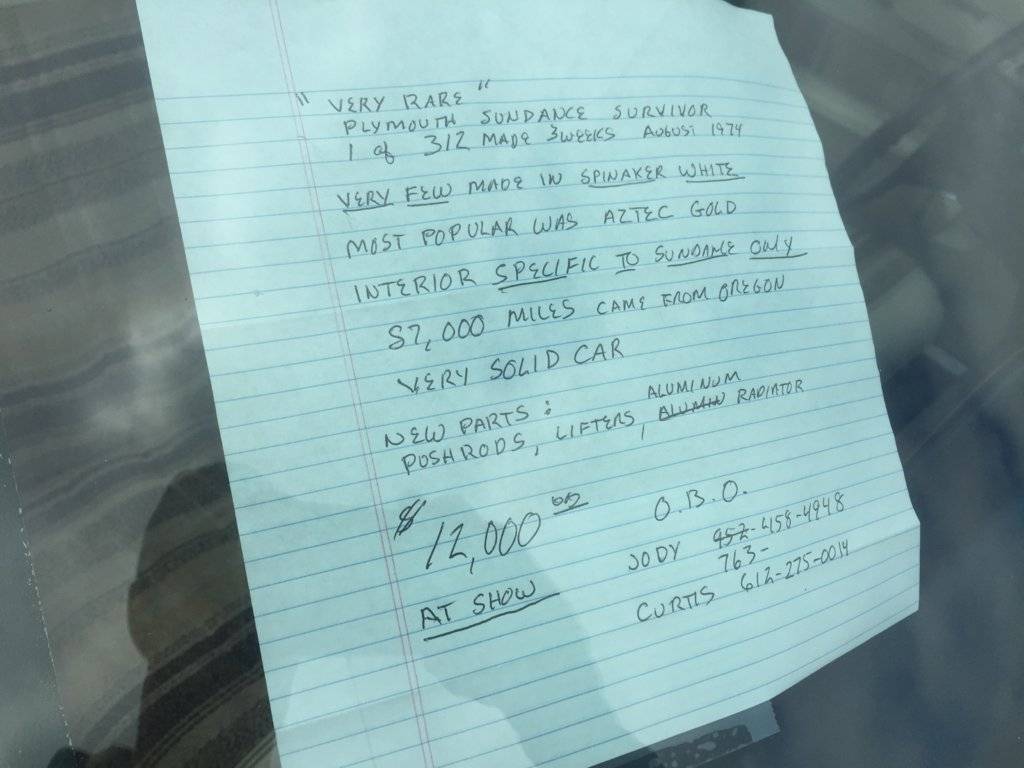 "VERY RARE"
PLYMOUTH SUNDANCE SURVIVOR
1 of 312 MADE 3 WEEKS AUGUST 1974
VERY FEW MADE IN SPINAKER WHITE
MOST POPULAR WAS AZTEC GOLD
INTERIOR SPECIFIC TO SUNDANCE ONLY
57,000 MILES CAME FROM OREGON
VERY SOLID CAR
NEW PARTS:
ALUMINUM
POSHRODS, LIFTERS, ALUMIN RADIATOR
$12,000 00 O.B.O.
JODY 952-458-4948
763-
AT SHOW
CURTIS 612-275-0014